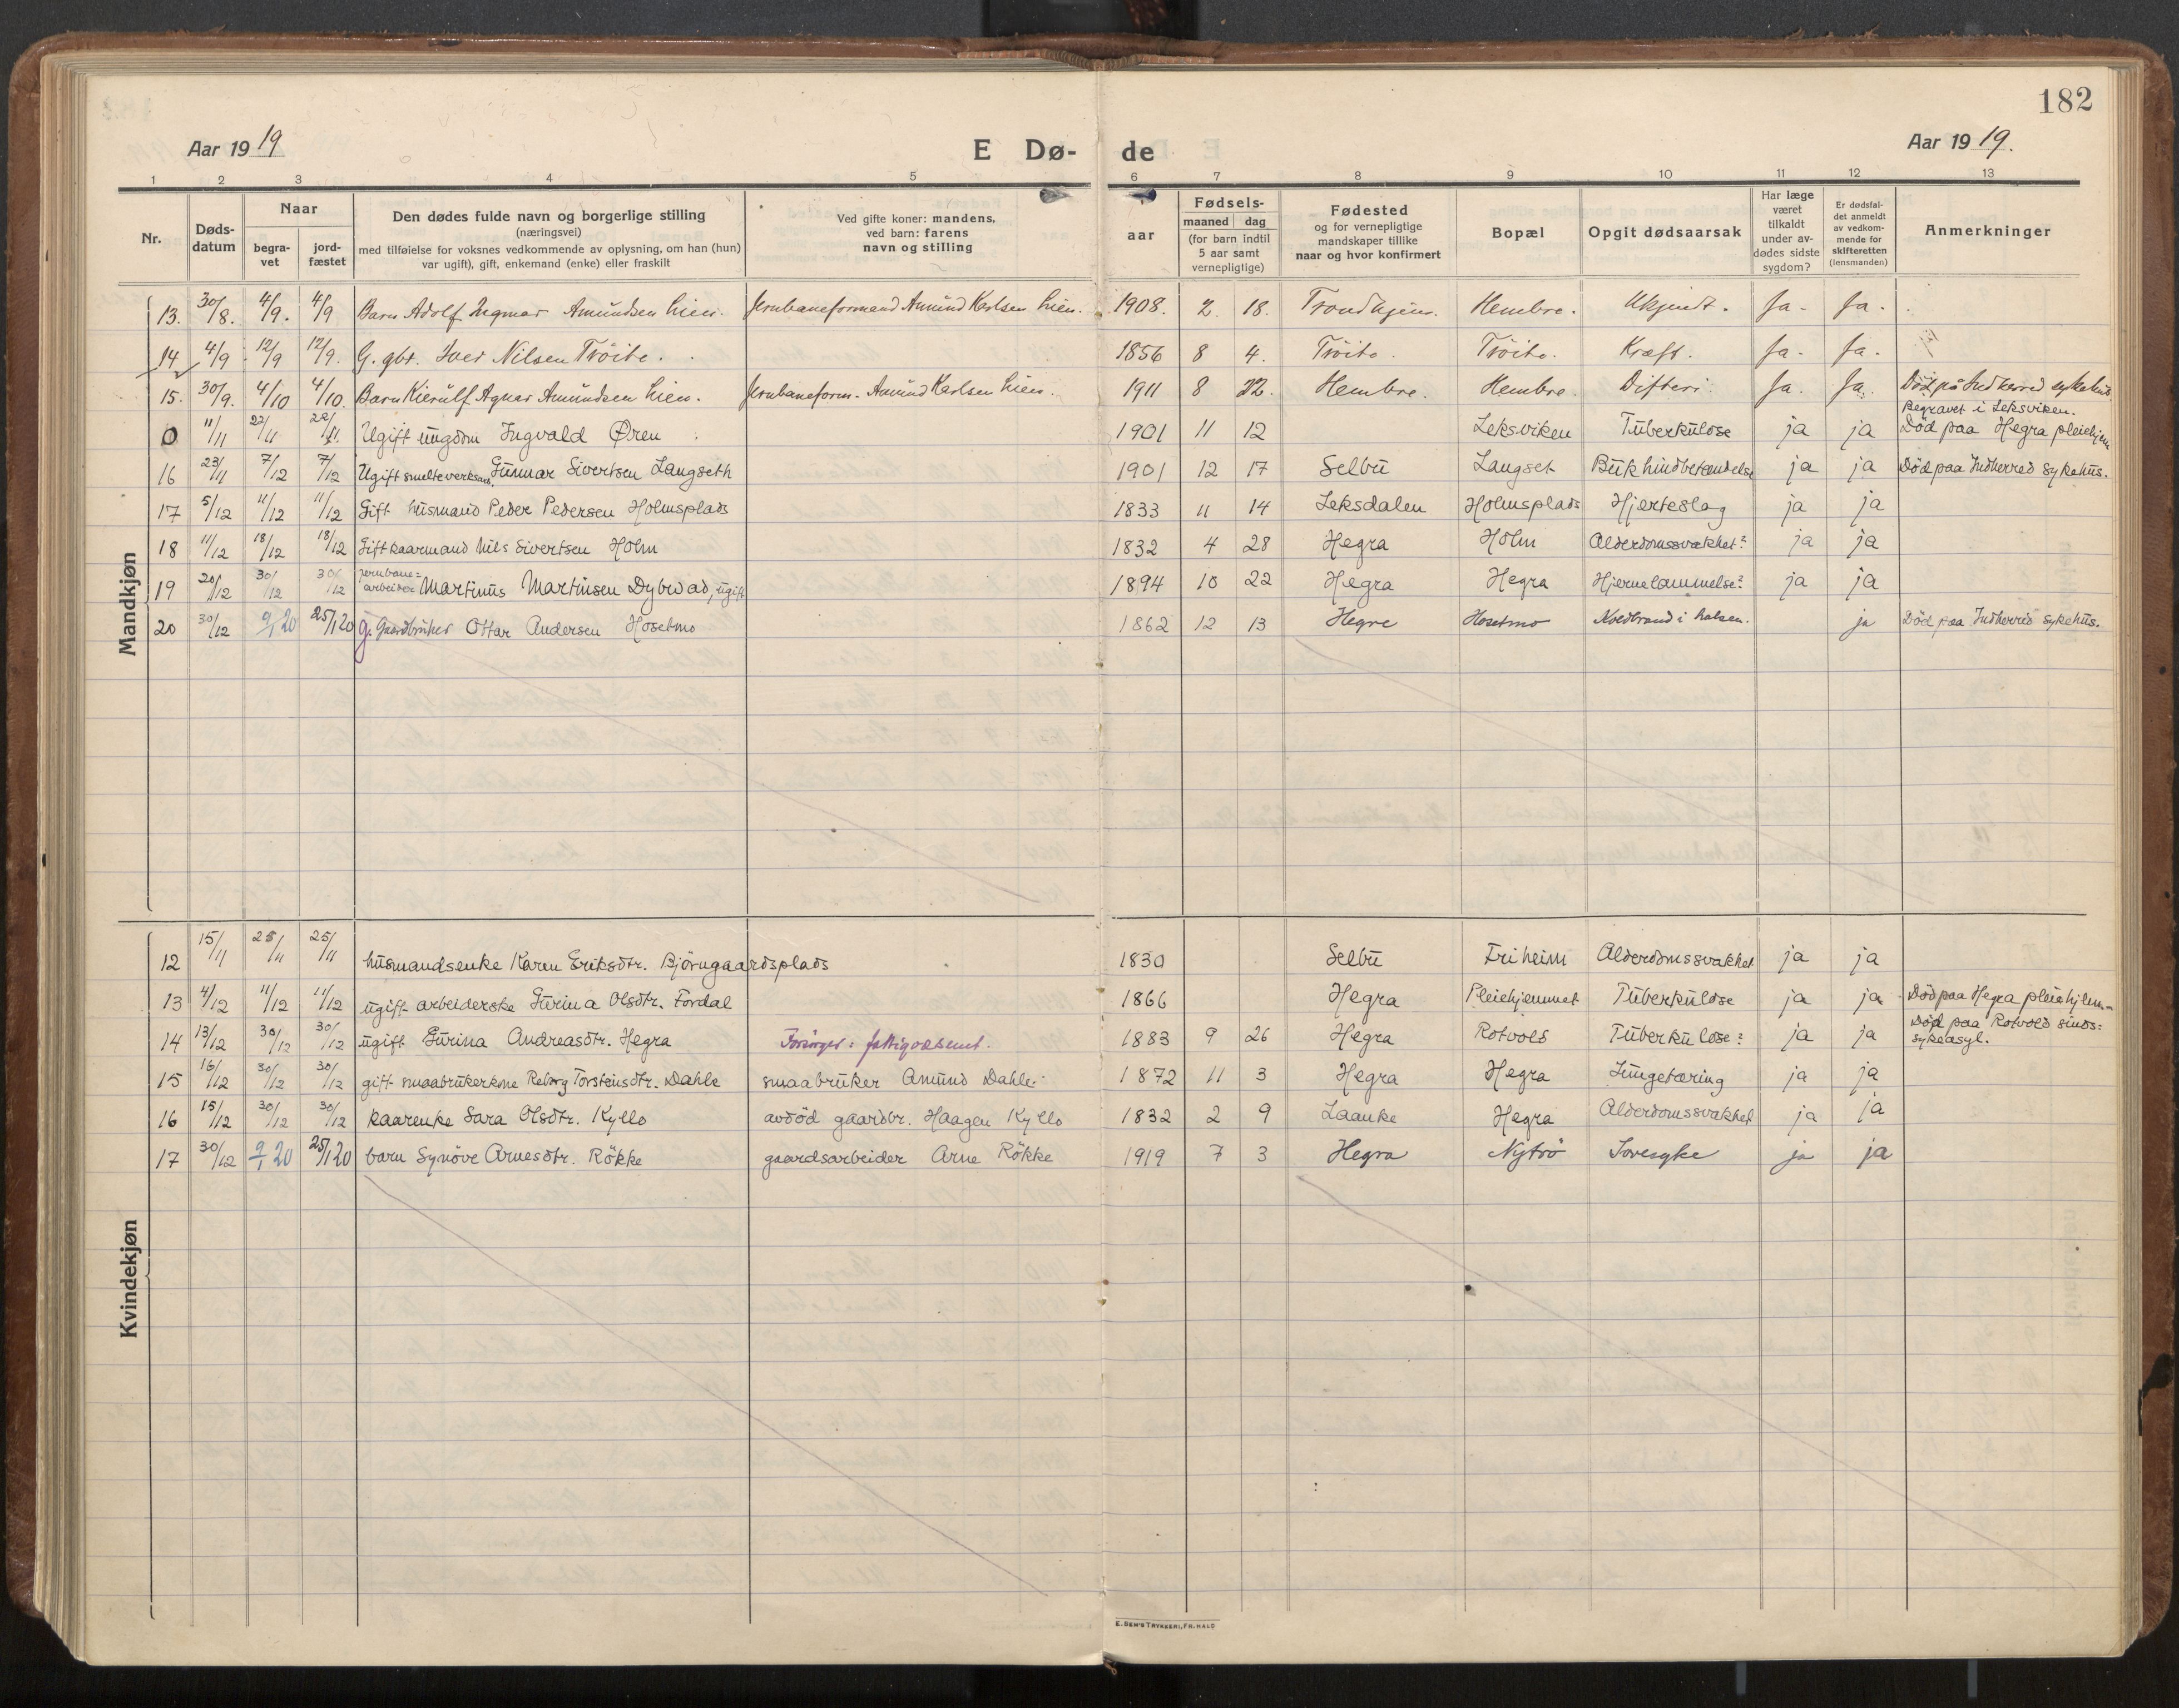 182
Aar 1919
E Dø-
de
Aar 1919.
1 2 3 4 5 6 7 8 9 10 11 12 13
Nr.
Døds-
datum
Naar
begra-
vet
jord-
fæstet
Den dødes fulde navn og borgerlige stilling
(næringsvei)
med tilføielse for voksnes vedkommende av oplysning, om han (hun)
var ugift), gift, enkemand (enke) eller fraskilt
Ved gifte koner: mandens,
ved barn: farens
navn og stilling
aar
Fødsels-
maaned dag
(for barn indtil
5 aar samt
vernepligtige)
Fødested
og for vernepligtige
mandskaper tillike
naar og hvor konfirmert
Bopæl
Opgit dødsaarsak
Har læge
været
tilkaldt
under av-
dødes sidste
sygdom?
Er dødsfal-
det anmeldt
av vedkom-
mende for
skifteretten
(lensmanden)
Anmerkninger
Mandkjøn
13. 30/8. 4/9. 4/9 Barn Adolf Ingmar Amundsen Lien. Jernbaneformand Amund Karlsen Lien. 1908. 2. 18. Trondhjem. Hembre. Ukjendt. Ja. Ja.
14 4/9 12/9 12/9. G. gbr. Iver Nilsen Tröite. 1856 8 4. Tröite. Tröite. Kræft. Ja. Ja.
15. 30/9. 4/10 4/10. Barn Kierulf Agnar Amundsen Lien. Jernbaneform. Amund Karlsen Lien. 1911 8 22. Hembre. Hembre. Difteri. Ja. Ja. Död på Indherred sykehus.
Begravet i Leksviken.
0 11/11 22/11 22/11. Ugift ungdom Ingvald Øren 1901 11 12 Leksviken Tuberkulose ja ja Död paa Hegra pleiehjem
16 23/11 7/12 7/12 Ugift smelteverksarb. Gunnar Sivertsen Langseth 1901 12 17 Selbu Langset Bukhindbetændelse ja ja Död paa Indherred sykehus.
17 5/12 11/12 11/12 Gift husmand Peder Pedersen Holmsplads 1833 11 14 Leksdalen Holmsplads Hjerteslag ja ja
18 11/12 18/12 18/12 Gift kaarmand Nils Sivertsen Holm 1832 4 28 Hegra Holm Alderdomssvakhet? ja ja
19 20/12 30/12 30/12 jernbane=
arbeider Martinus Martinsen Dybvad, ugift 1894 10 22 Hegra Hegra Hjernelammelse? ja ja
20 30/12 9/1 20 25/1 20 g. Gaardbruker Ottar Andersen Hosetmo 1862 12 13 Hegre Hosetmo Koldbrand i halsen. ja Död paa Indherred sykehus.
Kvindekjøn
12 15/11 25/11 25/11 husmandsenke Karen Eriksdtr. Björngaardsplads 1830 Selbu Friheim Alderdomssvakhet ja ja
13 4/12 11/12 11/12 ugift arbeiderske Gurina Olsdtr. Fordal 1866 Hegra Pleiehjemmet Tuberkulose ja ja Död paa Hegra pleiehjem
14 13/12 30/12 30/12 ugift Gurina Andreasdtr. Hegra Forsörget: fattigvæsenet. 1883 9 26 Hegra Rotvold Tuberkulose? ja ja Död paa Rotvold sinds=
sykeasyl.
15 16/12 30/12 30/12 gift smaabrukerkone Reberg Torstensdtr. Dahle smaabruker Amund Dahle. 1872 11 3 Hegra Hegra Lungetæring ja ja
16 15/12 30/12 30/12 kaarenke Sara Olsdtr. Kyllo avdöd gaardbr. Haagen Kyllo 1832 2 9 Laanke Hegra Alderdomssvakhet ja ja
17 30/12 9/1 20 25/1 20 barn Synöve Arnesdtr. Rökke gaardsarbeider Arne Rökke 1919 7 3 Hegra Nytrö Sovesyke ja ja
E. SEM'S TRYKKERI, FR.HALD